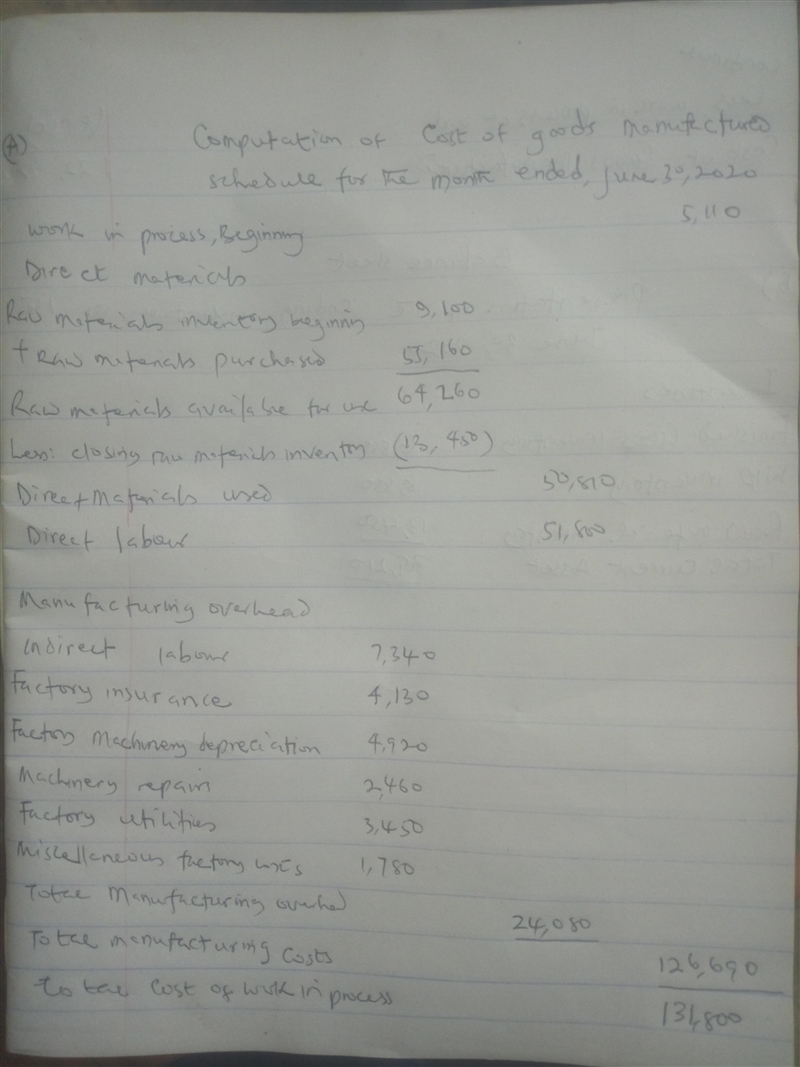 (A) Computation of Cost of goods manufactured
schedule for the month ended, June 30, 2020
5,110
Work in process, Beginning
Direct materials
Raw materials inventory beginning 9,100
+ Raw materials purchased 55,160
Raw materials available for use 64,260
Less: closing raw materials inventory (13,450)
Direct materials used 50,810
Direct labour 51,800
Manufacturing overhead
Indirect labour 7,340
Factory insurance 4,130
Factory Machinery depreciation 4,920
Machinery repairs 2,460
Factory utilities 3,450
Miscellaneous factory 1,780
Total Manufacturing overhead
24,080
Total manufacturing Costs
126,690
Total Cost of work in process
131,800